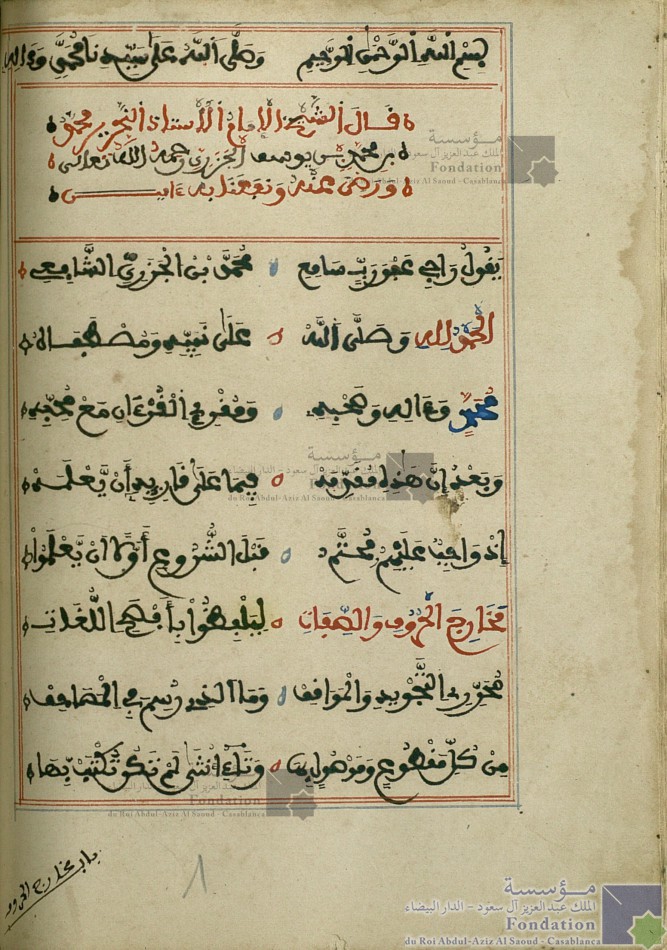 بسم الله الرحمن الرحيم وصلى الله على سيدنا محمد وءاله
قال الشيخ الإمام الأستاذ النحرير محمد
بن محمد بن يوسف الجزري رحمه الله تعالى
ورضي عنه ونفعنا به ءاميـن
يَقُولُ رَاجِي عَفْوِ رَبٍّ سَامِعِ مُحَمَّدُ بْنُ الْجَزَرِيِّ الشَّافِعِي
الْحَمْدُ لِلَّهِ وَصَلَّى اللَّهُ عَلَى نَبِيِّهِ وَمُصْطَفَاهُ
مُحَمَّدٍ وَءَالِهِ وَصَحْبِهِ وَمُقْرِئِ الْقُرْءَانِ مَعْ مُحِبِّهِ
وَبَعْدُ إِنَّ هَذِهِ مُقَدِّمَهْ فِيمَا عَلَى قَارِيهِ أَنْ يَّعْلَمَهْ
إِذْ وَاجِبٌ عَلَيْهِمُ مُحَتَّمُ قَبْلَ الشُّرُوعِ أَوَّلًا أَنْ يَّعْلَمُواْ
مَخَارِجَ الْحُرُوفِ وَالصِّفَاتِ لِيَلْفِظُواْ بِأَفْصَحِ اللُّغَاتِ
مُحَرِّرِي التَّجْوِيدِ وَالْمَوَاقِفِ وَمَا الَّذِي رُسِمَ فِي الْمَصَاحِفِ
مِنْ كُلِّ مَقْطُوعٍ وَمَوْصُولٍ بِهَا وَتَاءِ أُنْثَى لَمْ تَكُنْ تُكْتَبْ بِهَا
باب مخارج الحروف
مؤسسة
الملك عبد العزيز آل سعود - الدار البيضاء
Fondation
du Roi Abdul-Aziz Al Saoud - Casablanca